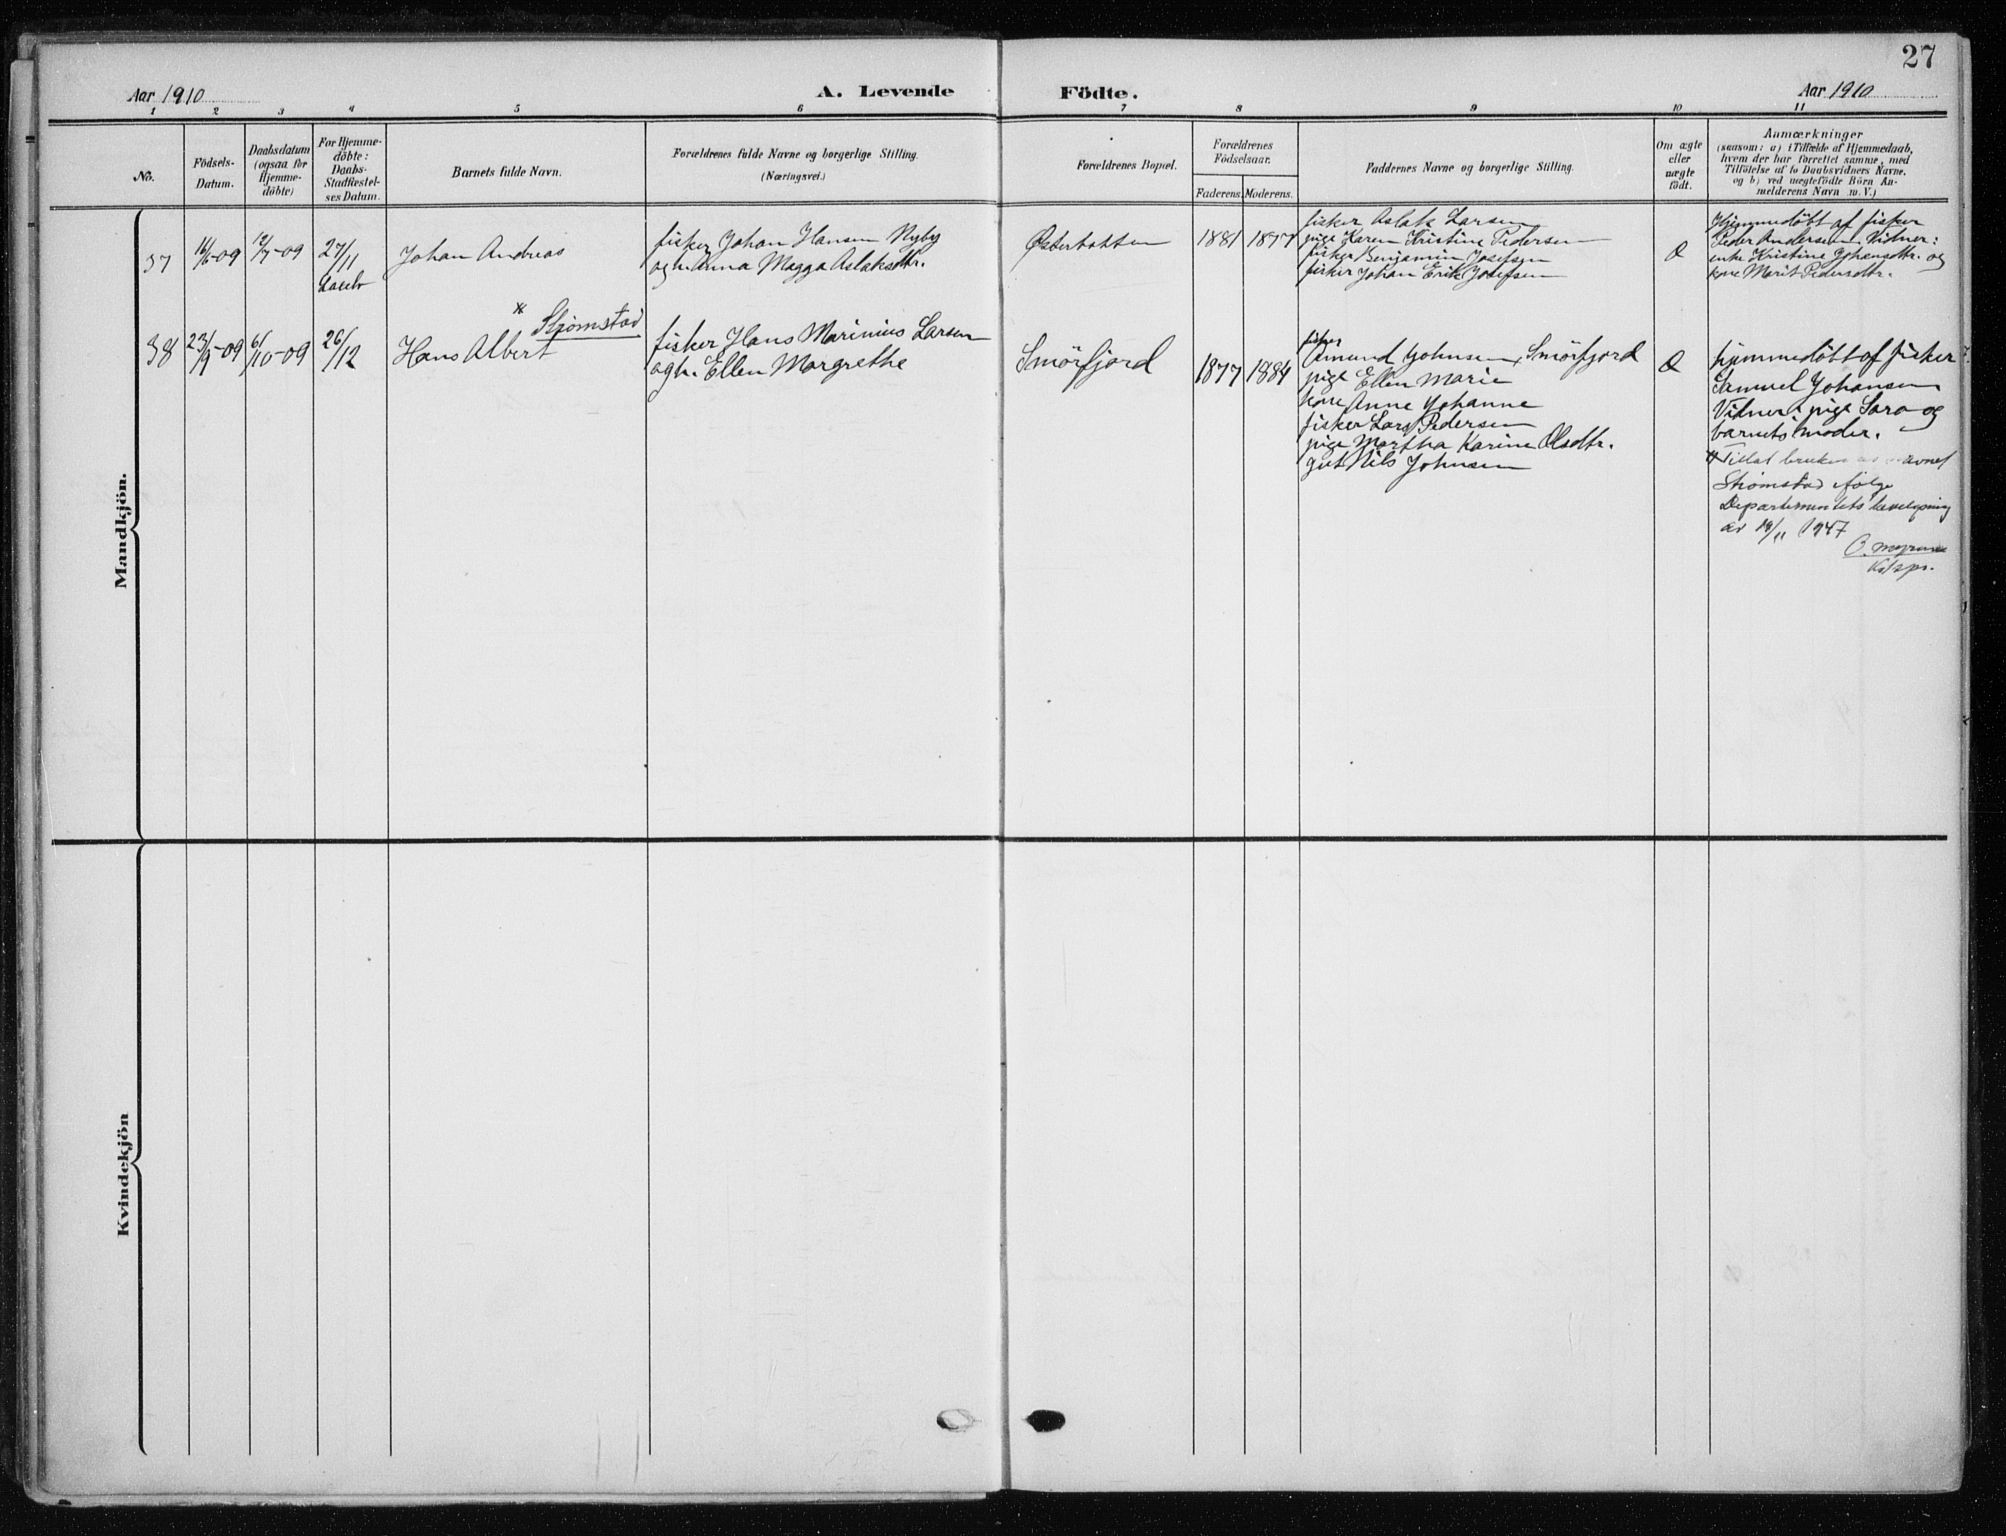 27
Aar 1910
A. Levende Födte.
Aar 1910
1 2 3 4 5 6 7 8 9 10 11
No.
Födsels-
Datum.
Daabsdatum
(ogsaa for
Hjemme-
döbte)
For Hjemme-
döbte:
Daabs-
Stadfæstel-
ses Datum.
Barnets fulde Navn.
Forældrenes fulde Navne og borgerlige Stilling.
(Næringsvei.)
Forældrenes Bopæl.
Forældrenes
Födselsaar.
Faderens. Moderens.
Faddernes Navne og borgerlige Stilling.
Om ægte
eller
uægte
født.
Anmærkninger
(saasom: a) i Tilfælde af Hjemmedaab,
hvem der har forrettet samme, med
Tilföielse af to Daabsvidners Navne.
og b) ved uægtefödte Börn An-
melderens Navn m. V.)
Mandkjön.
37
16/6-09
12/7-09
27/11
Johan Andreas
fisker Johan Hansen Nyby
og h. Anna Magga Aslaksdtr.
Østerbotten
1881
1877
fisker Aslak Larsen
pige Karen Kristine Pedersen
fisker Benjamin Josefsen
fisker Johan Erik Josefsen
Hjemmedöbt af fisker
Peder Andersen. Vidner:
enke Kristine Johansdtr. og
kone Marit Pedersdtr.
38
23/9-09
6/10-09
26/12
* Strømstad
Hans Albert
fisker Hans Marinius Larsen
og h. Ellen Margrethe
Smörfjord
1877
1884
fisker
Amund Johnsen, Smörfjord
pige Ellen Marie
kone Anne Johanne
fisker Lars Pedersen
pige Martha Karine Olsdtr.
gut Nils Johnsen
hjemmedöbt af fisker
Samuel Johansen
Vidner: pige Sara og
barnets moder.
* Tillat bruken av navnet
Strømstad ifølge
Departementets bevilgning
av 19/11 1947
Kst spr.
Kvindekjön